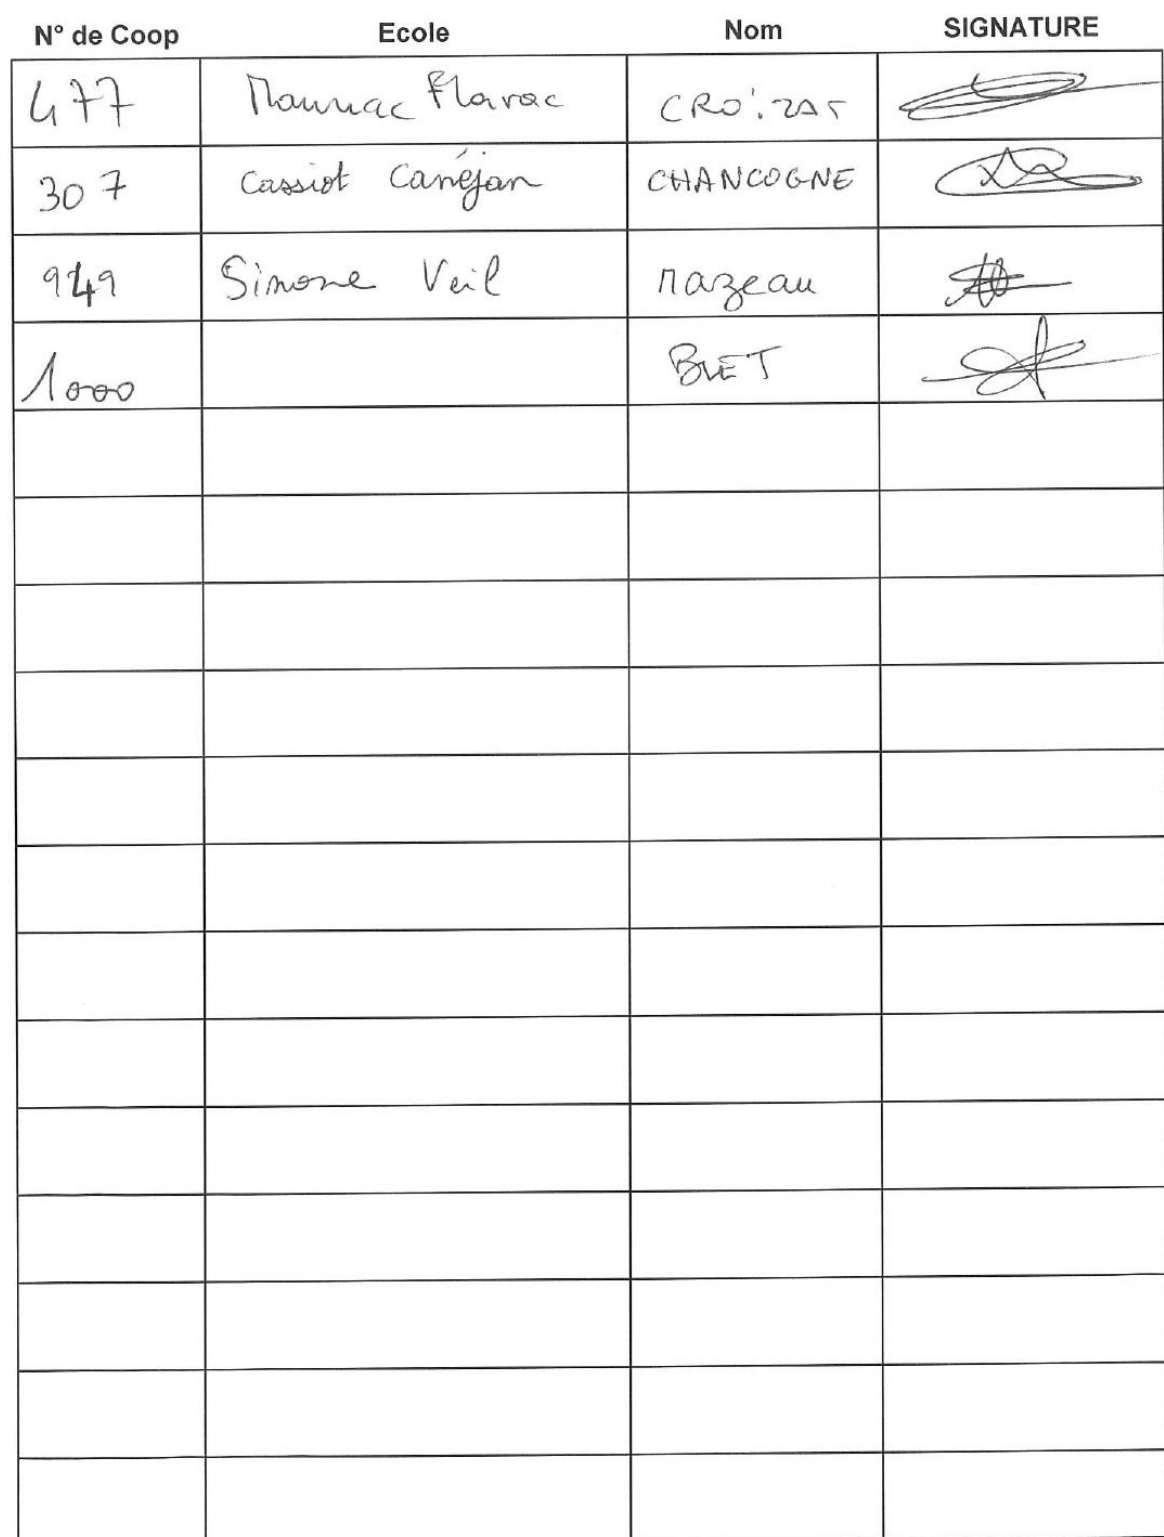 N° de Coop Ecole Nom SIGNATURE
477 Mauriac Flavac CROIZAT
307 Cassiot Canéjan CHANCOGNE
949 Simone Veil Mazeau
1000 BUET